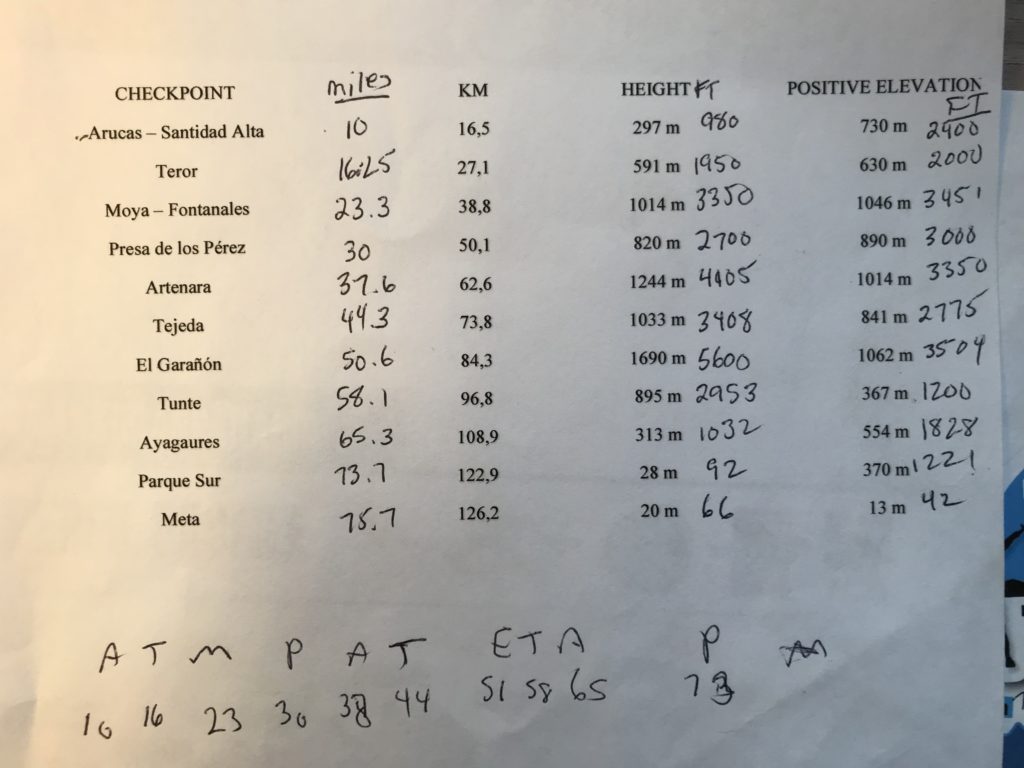 CHECKPOINT miles KM HEIGHT FT POSITIVE ELEVATION FT
Arucas – Santidad Alta 10 16,5 297 m 980 730 m 2400
Teror 16.25 27,1 591 m 1950 630 m 2000
Moya – Fontanales 23.3 38,8 1014 m 3350 1046 m 3451
Presa de los Pérez 30 50,1 820 m 2700 890 m 3000
Artenara 37.6 62,6 1244 m 4105 1014 m 3350
Tejeda 44.3 73,8 1033 m 3408 841 m 2775
El Garañón 50.6 84,3 1690 m 5600 1062 m 3504
Tunte 58.1 96,8 895 m 2953 367 m 1200
Ayagaures 65.3 108,9 313 m 1032 554 m 1828
Parque Sur 73.7 122,9 28 m 92 370 m 1221
Meta 75.7 126,2 20 m 66 13 m 42
A T M P A T E T A P M
10 16 23 30 38 44 51 58 65 73